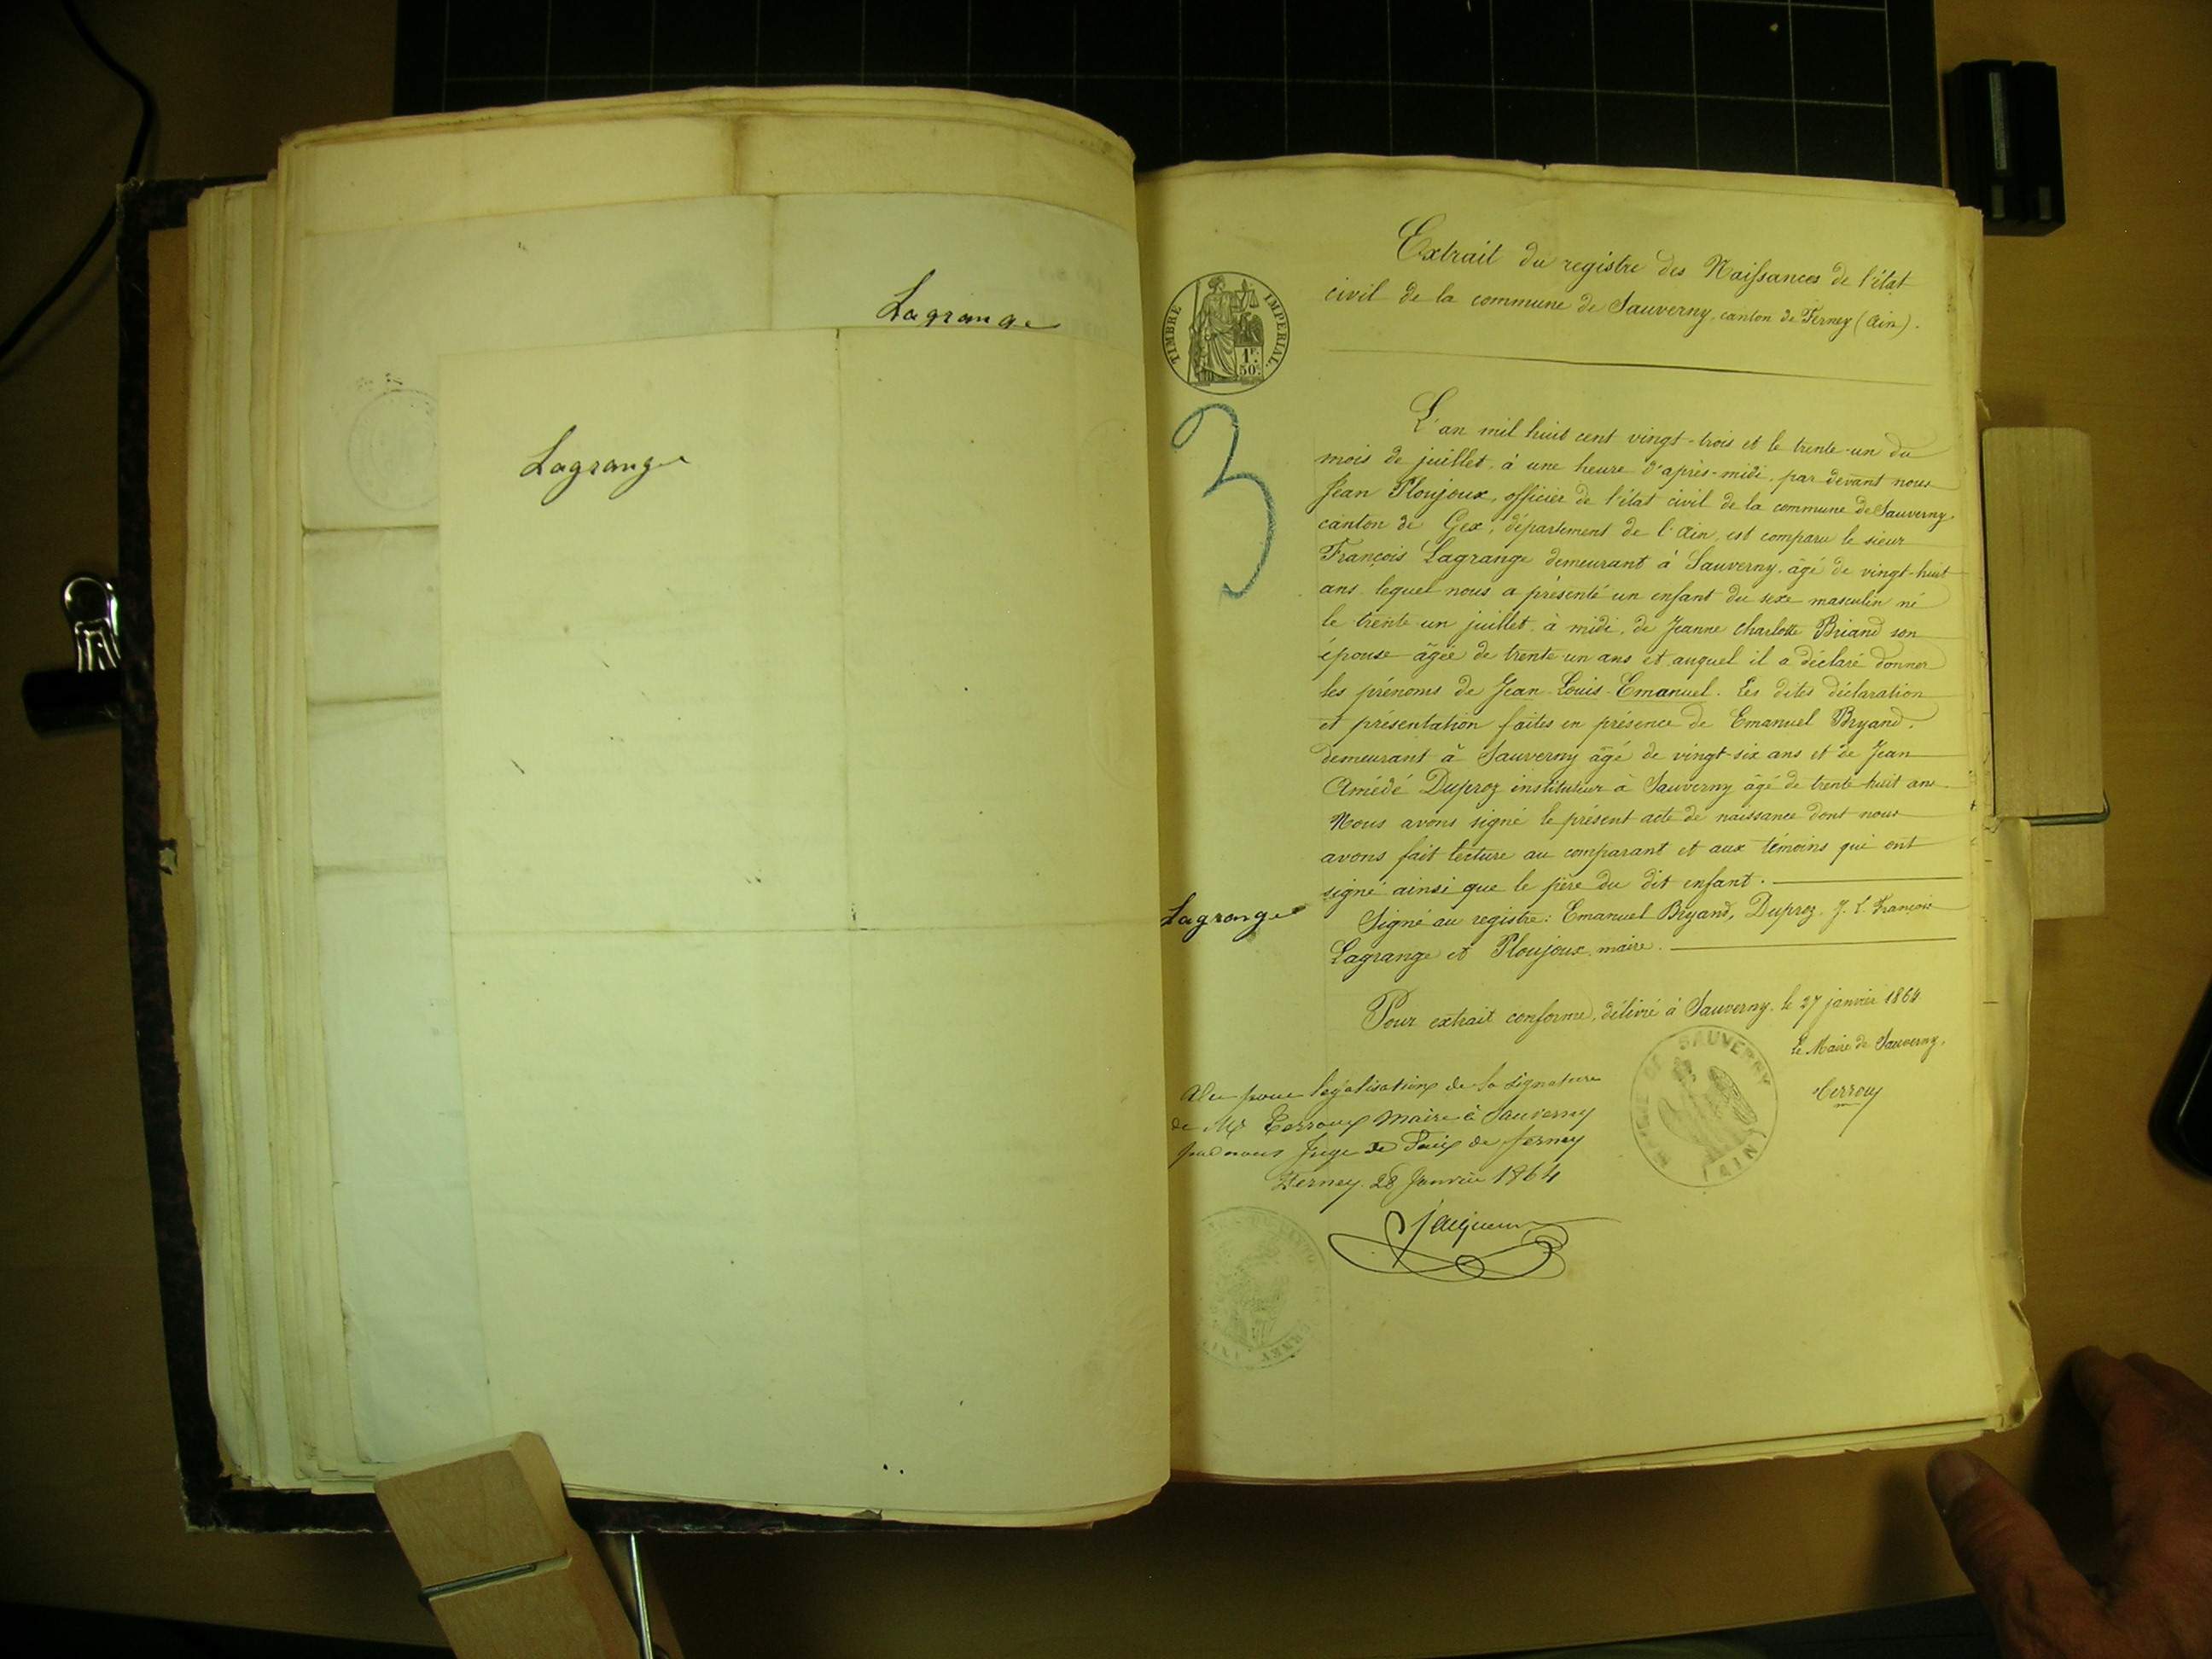 Lagrange
Lagrange
TIMBRE IMPERIAL.
1F.
50C.
3
Extrait du registre des Naissances de l'état
civil de la commune de Sauverny, canton de Ferney (Ain).
L'an mil huit cent vingt-trois et le trente-un du
mois de juillet, à une heure d'après-midi, par devant nous
Jean Ploujoux, officier de l'état civil de la commune de Sauverny,
canton de Gex, département de l'Ain, est comparu le sieur
François Lagrange demeurant à Sauverny, âgé de vingt-huit
ans, lequel nous a présenté un enfant du sexe masculin né
le trente-un juillet, à midi, de Jeanne Charlotte Briand son
épouse âgée de trente-un ans et auquel il a déclaré donner
les prénoms de Jean-Louis-Emanuel. Les dites déclaration
et présentation faites en présence de Emanuel Bryand,
demeurant à Sauverny âgé de vingt-six ans et de Jean
Amédé Duproz instituteur à Sauverny âgé de trente-huit ans.
Nous avons signé le présent acte de naissance dont nous
avons fait lecture au comparant et aux témoins qui ont
signé ainsi que le père du dit enfant.
Lagrange
Signé au registre: Emanuel Bryand, Duproz, J. L. François
Lagrange et Ploujoux, maire.
Pour extrait conforme, délivré à Sauverny, le 27 janvier 1864
Le Maire de Sauverny,
MAIRIE DE SAUVERNY
(AIN)
pour légalisation de la signature
de Mr Terroux Maire à Sauverny
par nous Juge de Paix de Ferney
Ferney, 28 Janvier 1864